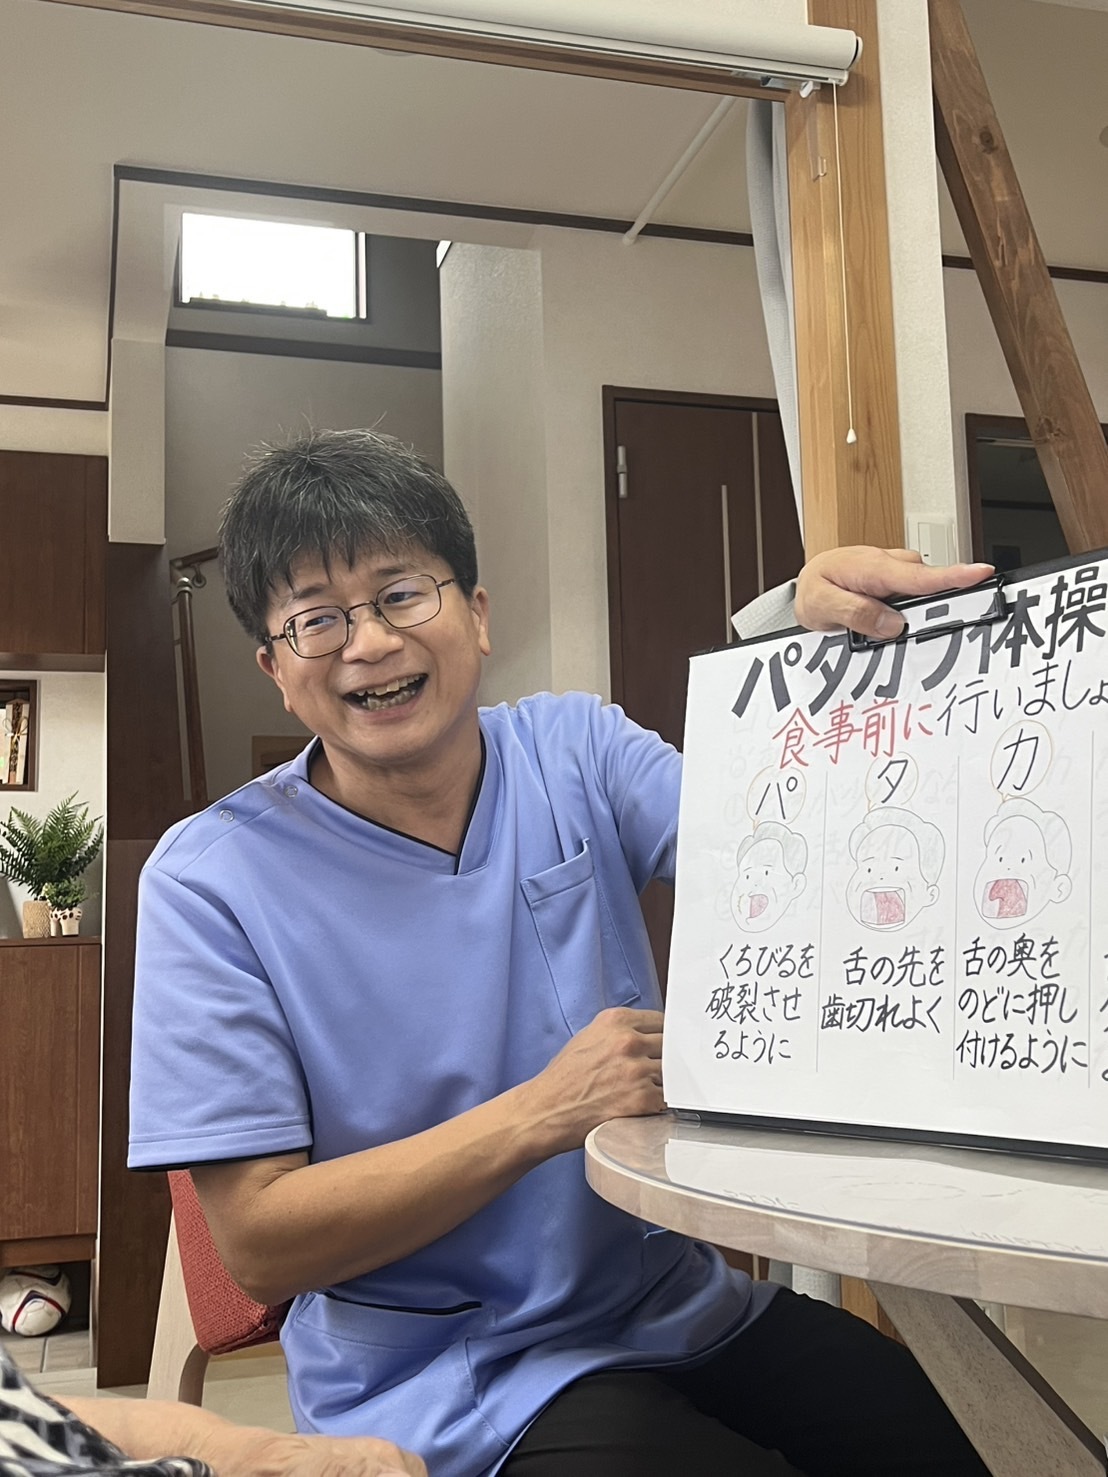 パタカラ体操
食事前に行いましょ
パ
タ
カ
くちびるを
破裂させ
るように
舌の先を
歯切れよく
舌の奥を
のどに押し
付けるように